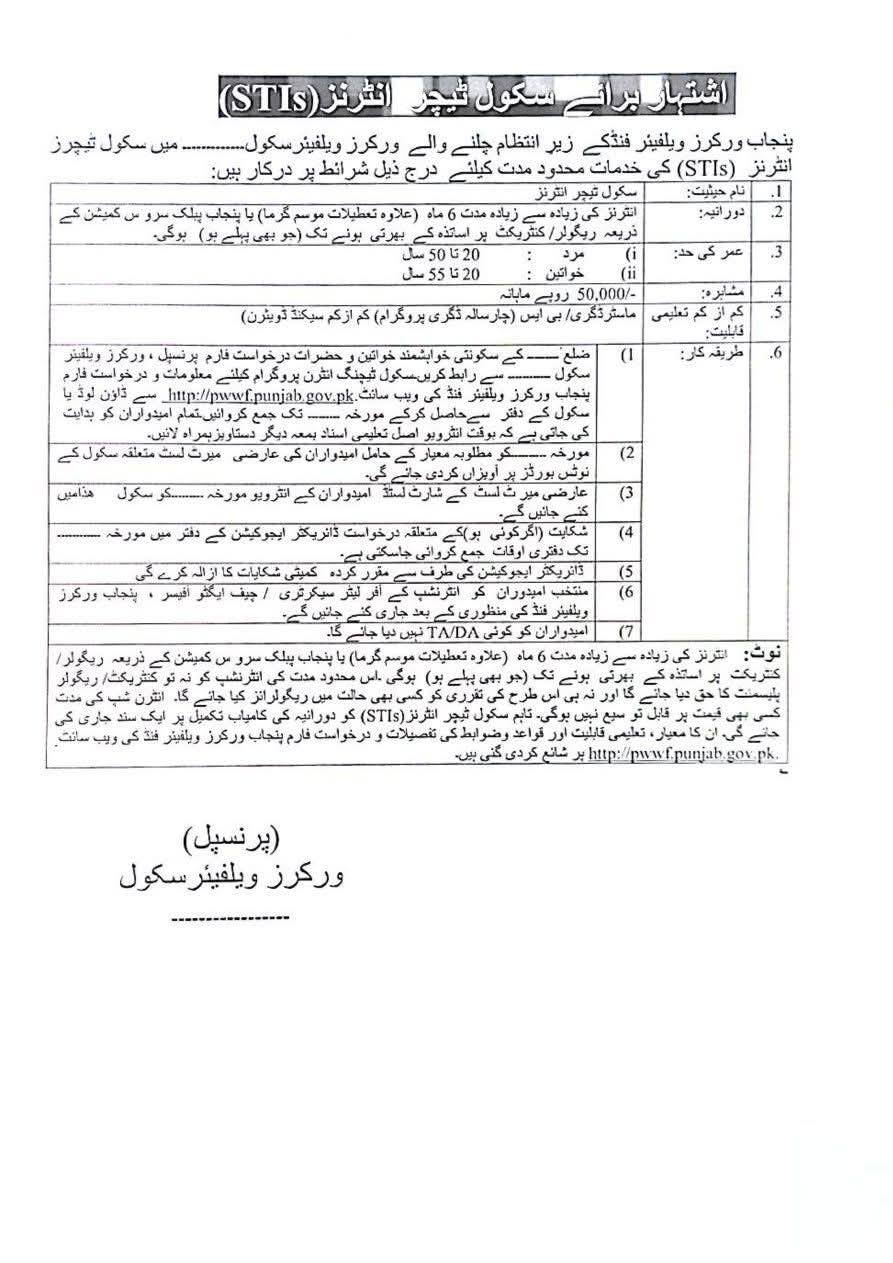 اشتہار برائے سکول ٹیچر انٹرنز(STIs)
پنجاب ورکرز ویلفیئر فنڈکے زیرِ انتظام چلنے والے ورکرز ویلفیئرسکول............. میں سکول ٹیچرز
انٹرنز (STIs) کی خدمات محدود مدت کیلئے درج ذیل شرائط پر درکار ہیں:
1. نام حیثیت: سکول ٹیچر انٹرنز
2. دورانیہ: انٹرنز کی زیادہ سے زیادہ مدت 6 ماہ (علاوہ تعطیلات موسم گرما) یا پنجاب پبلک سرو س کمیشن کے
ذریعہ ریگولر/ کنٹریکٹ پر اساتذہ کے بھرتی ہونے تک (جو بھی پہلے ہو) ہوگی۔
3. عمر کی حد: i) مرد : 20 تا 50 سال
ii) خواتین : 20 تا 55 سال
4. مشاہرہ: 50,000/- روپے ماہانہ
5. کم از کم تعلیمی ماسٹرڈگری/ بی ایس (چارسالہ ڈگری پروگرام) کم ازکم سیکنڈ ڈویثرن)
قابلیت:
6. طریقہ کار: 1) ضلع ....... کے سکونتی خواہشمند خواتین و حضرات درخواست فارم پرنسپل ، ورکرز ویلفیئر
سکول ........... سے رابط کریں۔سکول ٹیچنگ انٹرن پروگرام کیلئے معلومات و درخواست فارم
پنجاب ورکرز ویلفیئر فنڈ کی ویب سائٹ.http://pwwf.punjab.gov.pk سے ڈاؤن لوڈ یا
سکول کے دفتر سےحاصل کرکے مورخہ ......... تک جمع کروائیں۔تمام امیدواران کو ہدایت
کی جاتی ہے کہ بوقت انٹرویو اصل تعلیمی اسناد بمعہ دیگر دستاویزہمراہ لائیں۔
2) مورخہ .........کو مطلوبہ معیار کے حامل امیدواران کی عارضی میرٹ لسٹ متعلقہ سکول کے
نوٹس بورڈز پر آویزاں کردی جائے گی۔
3) عارضی میر ٹ لسٹ کے شارٹ لسٹڈ امیدواران کے انٹرویو مورخہ .........کو سکول ھذامیں
کئے جائیں گے۔
4) شکایت (اگرکوئی ہو)کے متعلقہ درخواست ڈائریکٹر ایجوکیشن کے دفتر میں مورخہ ............
تک دفتری اوقات جمع کروائی جاسکتی ہے۔
5) ڈائریکٹر ایجوکیشن کی طرف سے مقرر کردہ کمیٹی شکایات کا ازالہ کرے گی
6) منتخب امیدوران کو انٹرنشپ کے آفر لیٹر سیکرٹری / چیف ایگٹو آفیسر ، پنجاب ورکرز
ویلفیئر فنڈ کی منظوری کے بعد جاری کئے جائیں گے۔
7) امیدواران کو کوئی TA/DA نہیں دیا جائے گا۔
نوٹ: انٹرنز کی زیادہ سے زیادہ مدت 6 ماہ (علاوہ تعطیلات موسم گرما) یا پنجاب پبلک سرو س کمیشن کے ذریعہ ریگولر/
کنٹریکٹ پر اساتذہ کے بھرتی ہونے تک (جو بھی پہلے ہو) ہوگی ۔اس محدود مدت کی انٹرنشپ کو نہ تو کنٹریکٹ/ ریگولر
پلیسمنٹ کا حق دیا جائے گا اور نہ ہی اس طرح کی تقرری کو کسی بھی حالت میں ریگولرائز کیا جائے گا۔ انٹرن شپ کی مدت
کسی بھی قیمت پر قابل تو سیع نہیں ہوگی۔ تاہم سکول ٹیچر انٹرنز(STIs) کو دورانیہ کی کامیاب تکمیل پر ایک سند جاری کی
جائے گی۔ ان کا معیار، تعلیمی قابلیت اور قواعد وضوابط کی تفصیلات و درخواست فارم پنجاب ورکرز ویلفیئر فنڈ کی ویب سائٹ
http://pwwf.punjab.gov.pk. پر شائع کردی گئی ہیں۔
(پرنسپل)
ورکرز ویلفیئرسکول
-----------------